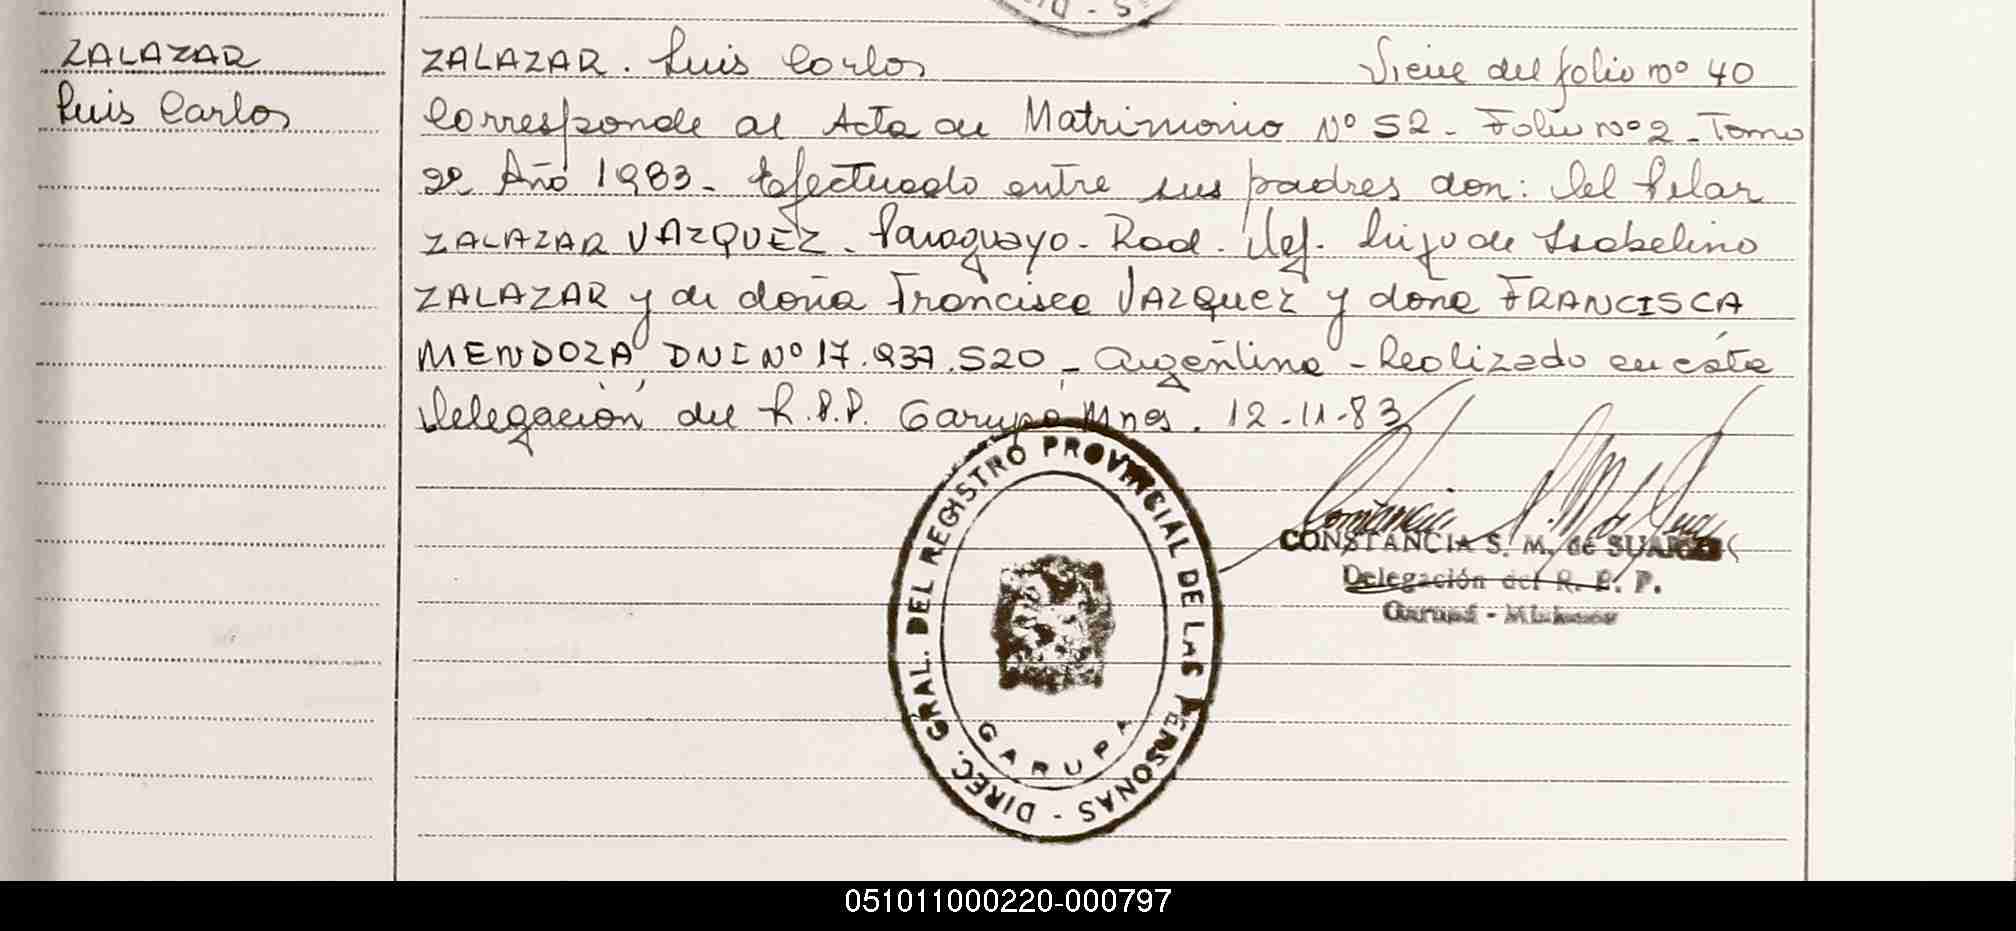 ZALAZAR
Luis Carlos
ZALAZAR. Luis Carlos Viene del folio nº 40
Corresponde al Acta de Matrimonio Nº 52 - Folio nº 2 - Tomo
2º Año 1983 - Efectuado entre sus padres don: del Pilar
ZALAZAR VAZQUEZ - Paraguayo - Rad. Def. hijo de Isabelino
ZALAZAR y de doña Francisca VAZQUEZ y doña FRANCISCA
MENDOZA DNI Nº 17.937.520 - argentina - Realizado en ésta
Delegación del R.P.P. Garupá Mnes. 12-11-83
DIREC. GRAL. DEL REGISTRO PROVINCIAL DE LAS PERSONAS -
GARUPA
CONSTANCIA S. M. de SUAREZ
Delegación del R. P. P.
Garupá - Misiones
051011000220-000797